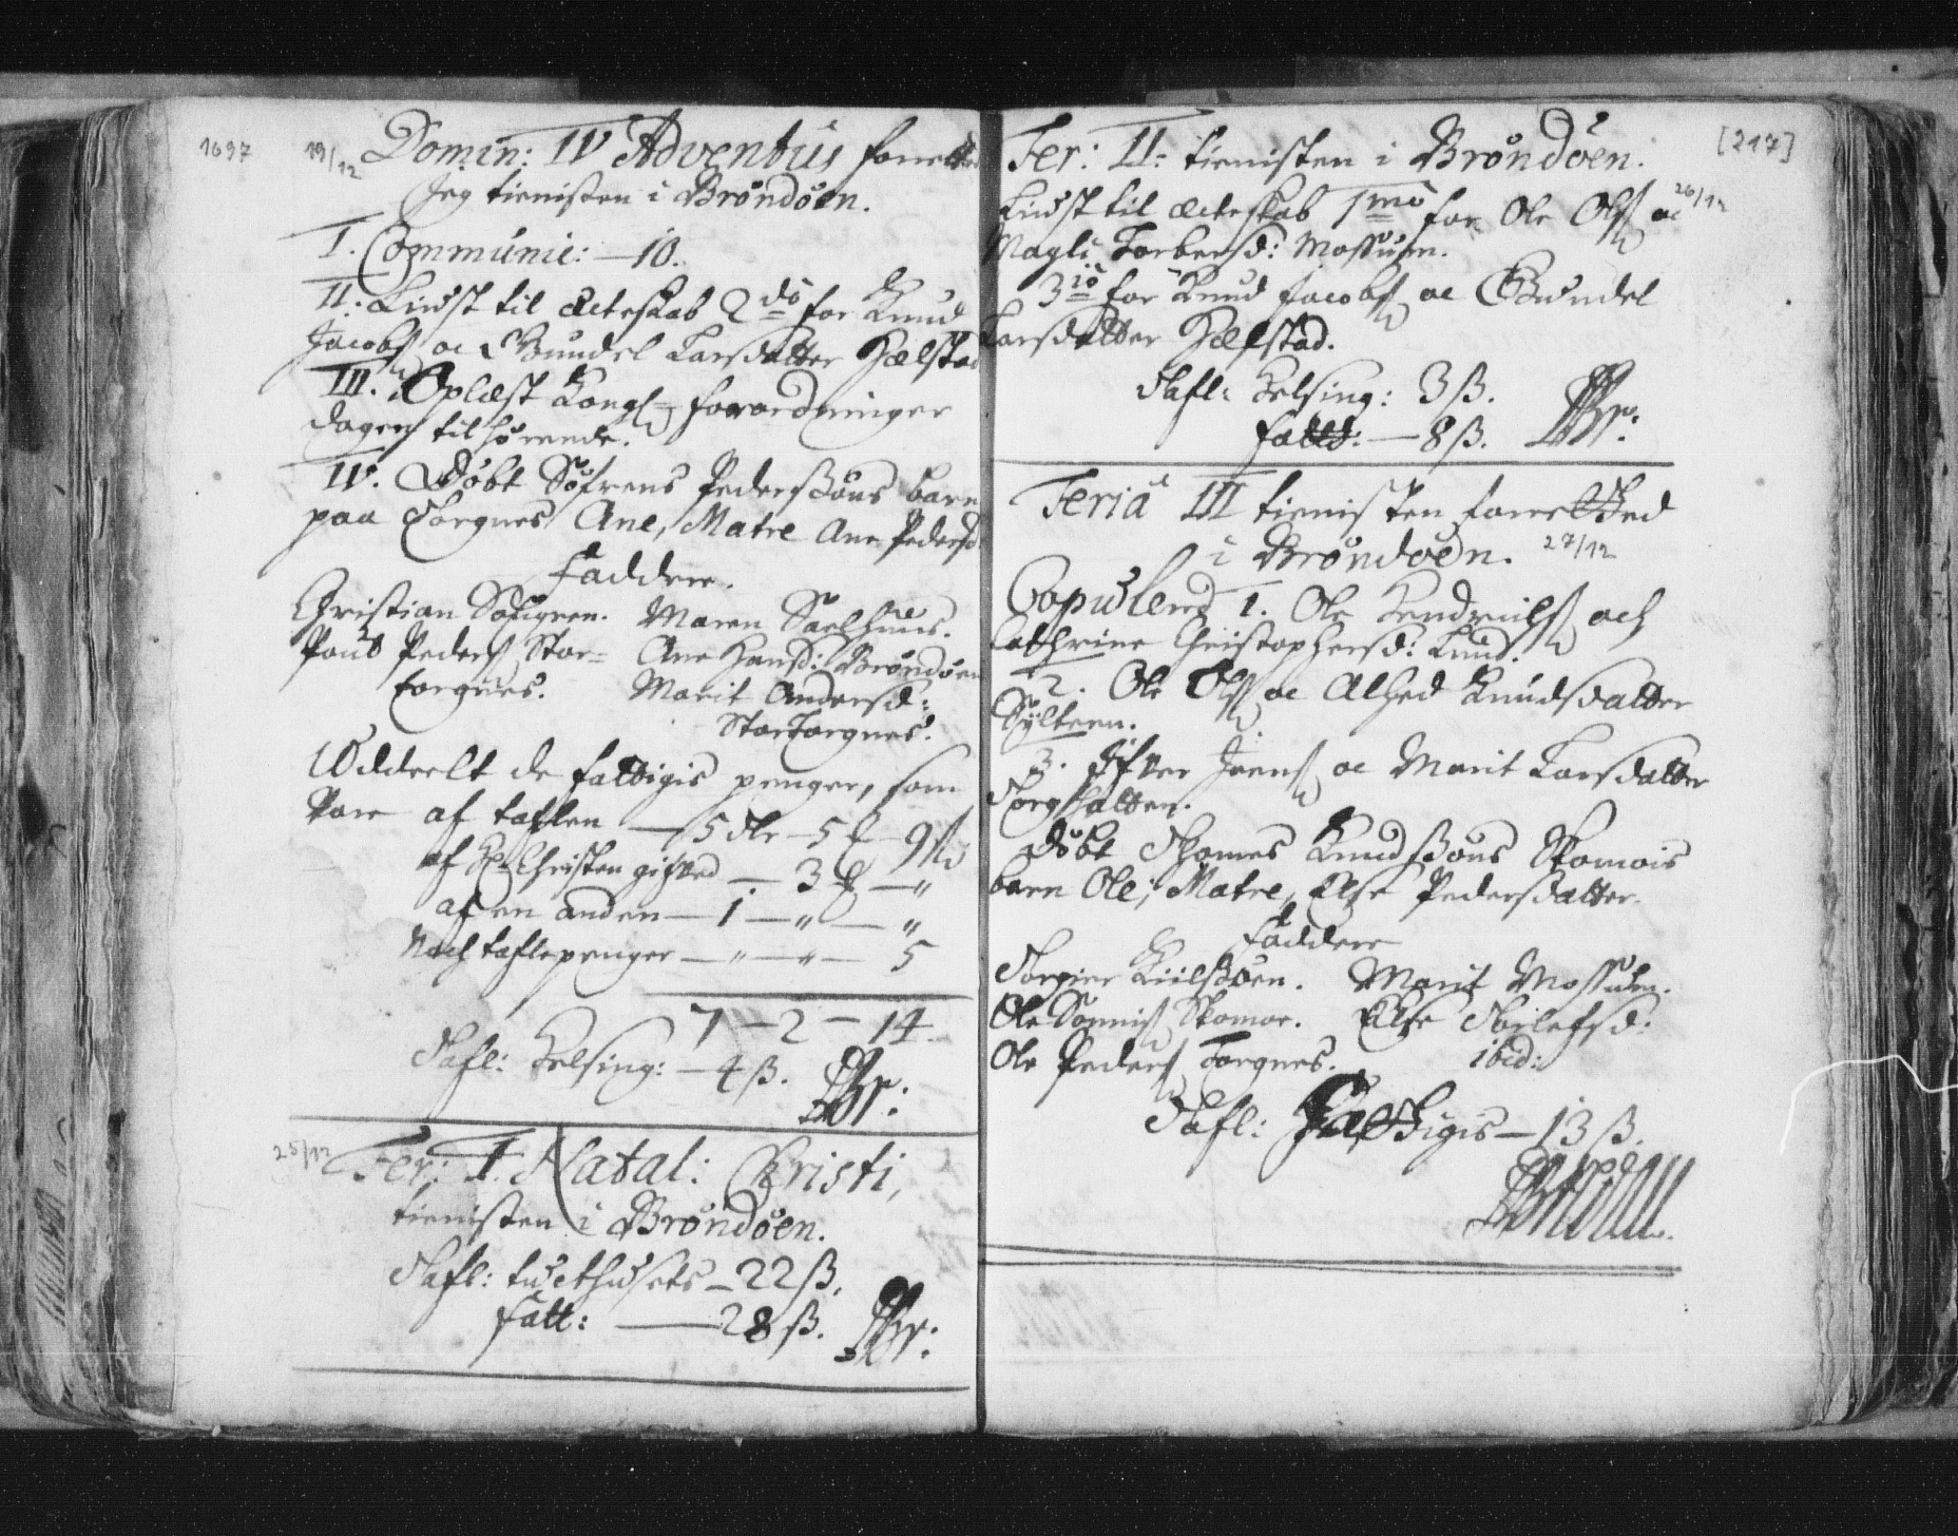 1697 19/12 Domin: IV Adventus forrettet
Jeg tienisten i Bröndöen.
I. Communic: — 10.
II. Liust til ecteskab 2do for Knud
Jacobs oc Gundel Larsdatter Hælstad
III. Oplæst Kongl forordninger
dagen tilhörende.
IV. Döbt Söfrens Pederssöns barn
paa Torgnes Ane, Matre Ane Pedersd
Faddere.
Christian Söfrgren. Maren Saelhuus.
Paul Peders Stor= Ane Hansd: Bröndöen
torgnes. Marit Andersd:
StorTorgnes.
Uddeelt de fattigis penger, som
Vare af taflen — 5 dlr — 5 — 9
af Christen gifved — 3 — "
af en anden — 1 — " — "
Noch taflepenger — " — " — 5
7 — 2 — 14.
Tafl: Helsing: — 4 ß.
25/12 Fer: I. Natal: Christi,
tienisten i Bröndöen.
Tafl: tuchthusets — 22 ß.
fatt: — 28 ß.
Fer: II: tienisten i Bröndöen. [217]
Liust til ecteskab 1mo for Ole Ols oc 26/12
Magli Torbersd: Mossuem.
3io for Knud Jacobs oc Gundel
Larsdatter Hælstad.
Tafl: Helsing: 3 ß.
fatt: — 8 ß.
Feria III tienisten forretted
i Bröndöen. 27/12
Copulerd 1. Ole Hendrichs och
Cathrine Christophersd: Lund.
2. Ole Ols oc Alhed Knudsdatter
Sylteren.
3. Ifver Jens oc Marit Larsdatter
Torghatten.
Döbt Thomes Knudssöns Skomois
barn Ole, Matre, Else Pedersdatter.
Faddere
Torgier Kiilssöen. Marit Mossuem.
Ole Skomoe. Else Torlefsd:
Ole Peders Torgnes. ibid:
Tafl: Fattigis — 13 ß.